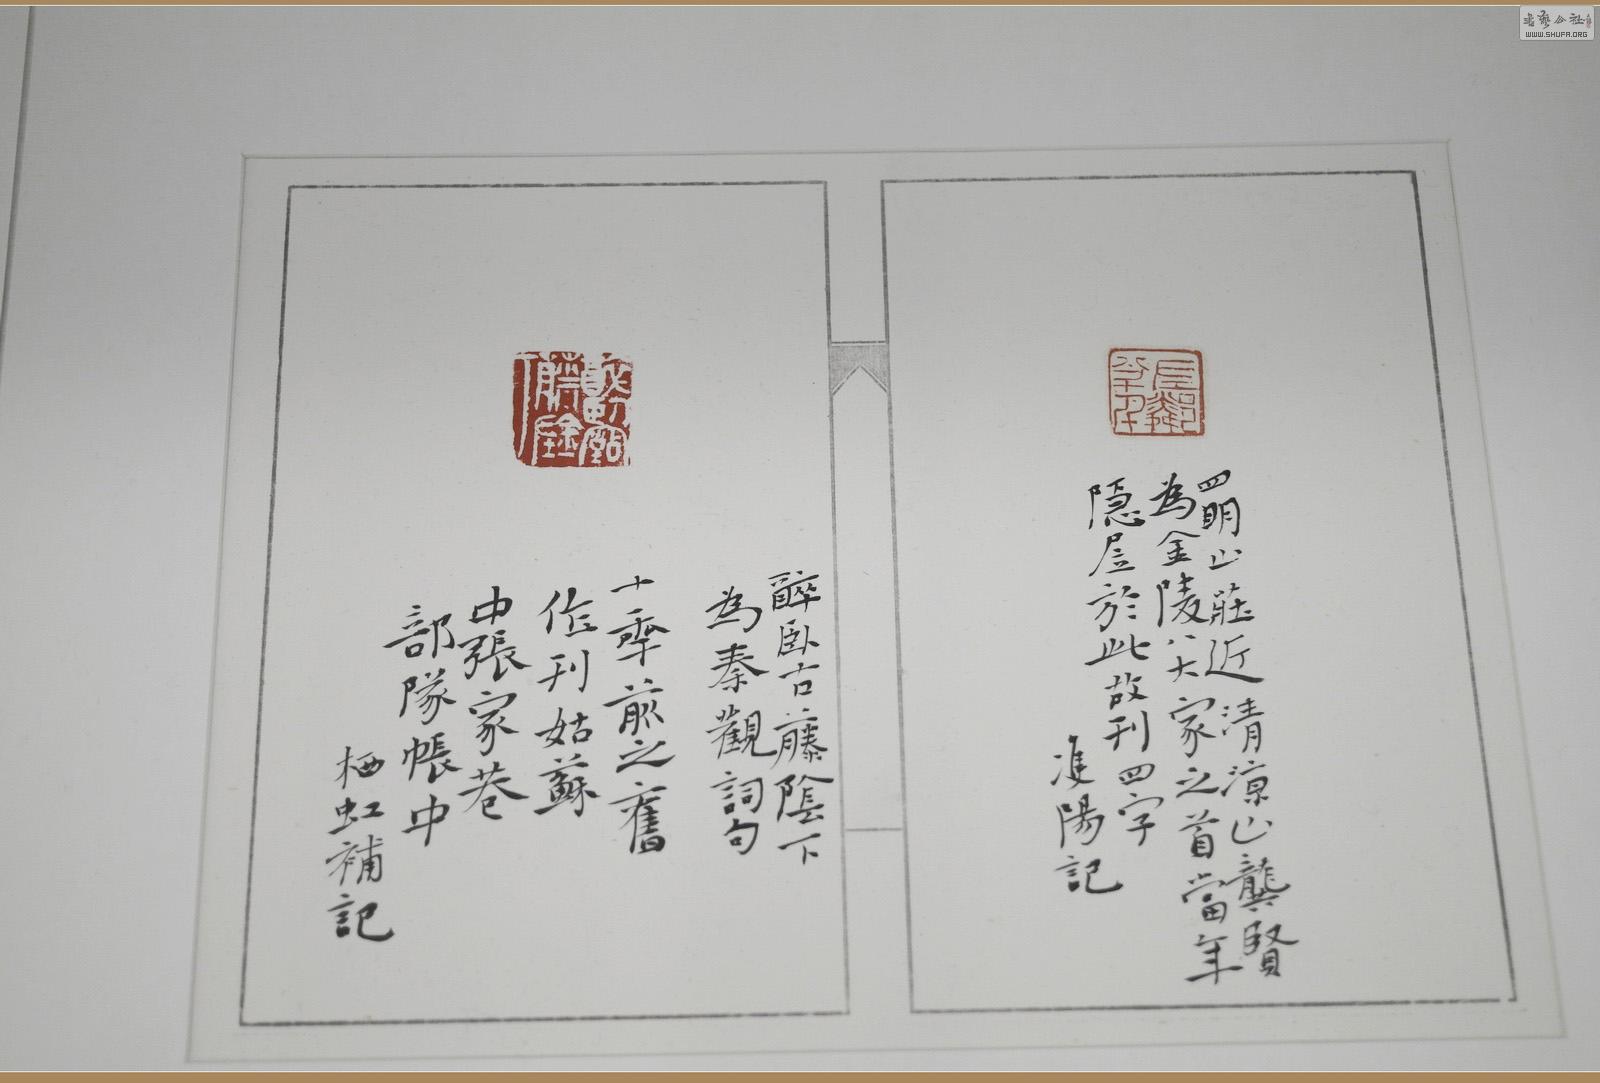 四明山莊近清涼山龔賢
為金陵八大家之首當年
隱居於此故刊四字
淮陽記
醉臥古藤陰下
為秦觀詞句
十年前之舊
作刊姑蘇
中張家巷
部隊帳中
栖虹補記
書藝公社
WWW.SHUFA.ORG